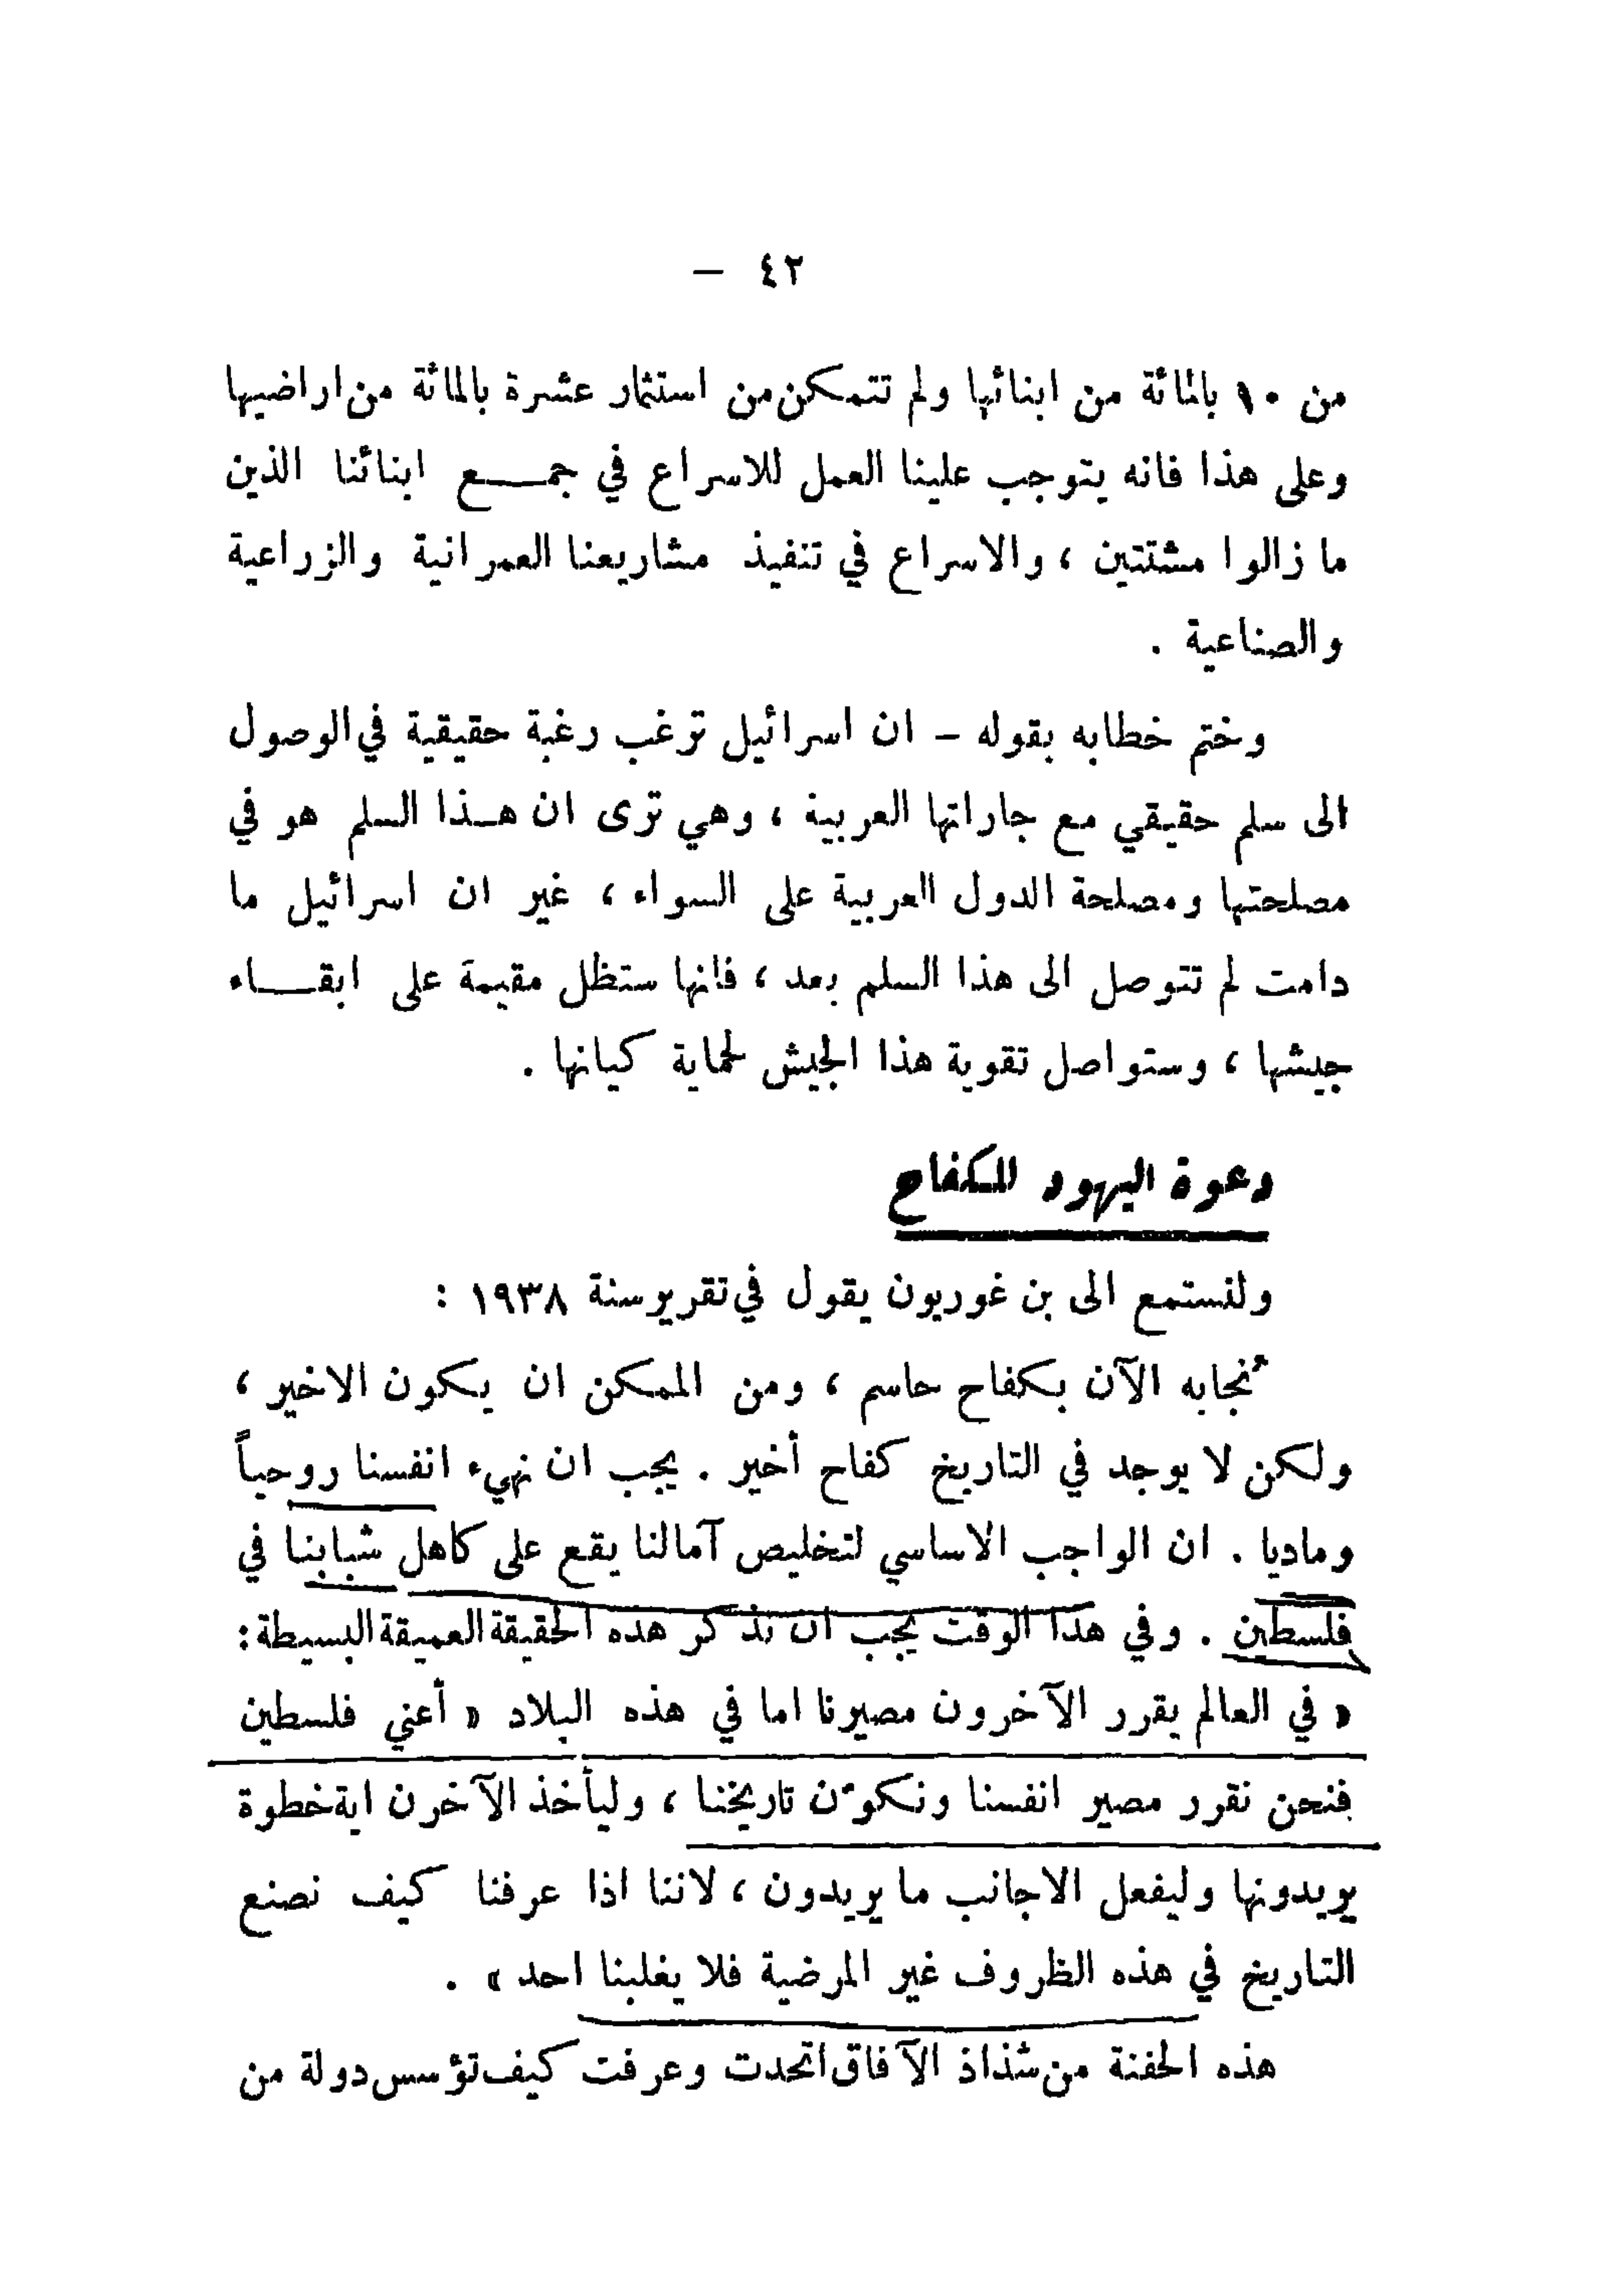 ٤٢ —
من ١٠ بالمائة من ابنائها ولم تتمكن من استثمار عشرة بالمائة من اراضيها
وعلى هذا فانه يتوجب علينا العمل للاسراع في جمــع ابنائنا الذين
ما زالوا مشتتين ، والاسراع في تنفيذ مشاريعنا العمرانية والزراعية
والصناعية .
وختم خطابه بقوله – ان اسرائيل ترغب رغبة حقيقية في الوصول
الى سلم حقيقي مع جاراتها العربية ، وهي ترى ان هـذا السلم هو في
مصلحتها ومصلحة الدول العربية على السواء ، غير ان اسرائيل ما
دامت لم تتوصل الى هذا السلم بعد ، فانها ستظل مقيمة على ابقــاء
جيشها ، وستواصل تقوية هذا الجيش لحماية كيانها .
دعوة اليهود للكفاح
ولنستمع الى بن غوريون يقول في تقرير سنة ١٩٣٨ :
نُجابه الآن بكفاح حاسم ، ومن الممكن ان يكون الاخير ،
ولكن لا يوجد في التاريخ كفاح أخير . يجب ان نهيء انفسنا روحياً
وماديا . ان الواجب الاساسي لتخليص آمالنا يقع على كاهل شبابنا في
فلسطين . وفي هذا الوقت يجب ان نذكر هذه الحقيقة العميقة البسيطة :
« في العالم يقرر الآخرون مصيرنا اما في هذه البلاد « أعني فلسطين
فنحن نقرر مصير انفسنا ونكوّن تاريخنا ، وليأخذ الآخرن اية خطوة
يريدونها وليفعل الاجانب ما يريدون ، لاننا اذا عرفنا كيف نصنع
التاريخ في هذه الظروف غير المرضية فلا يغلبنا احد » .
هذه الحفنة من شذاذ الآفاق اتحدت وعرفت كيف تؤسس دولة من